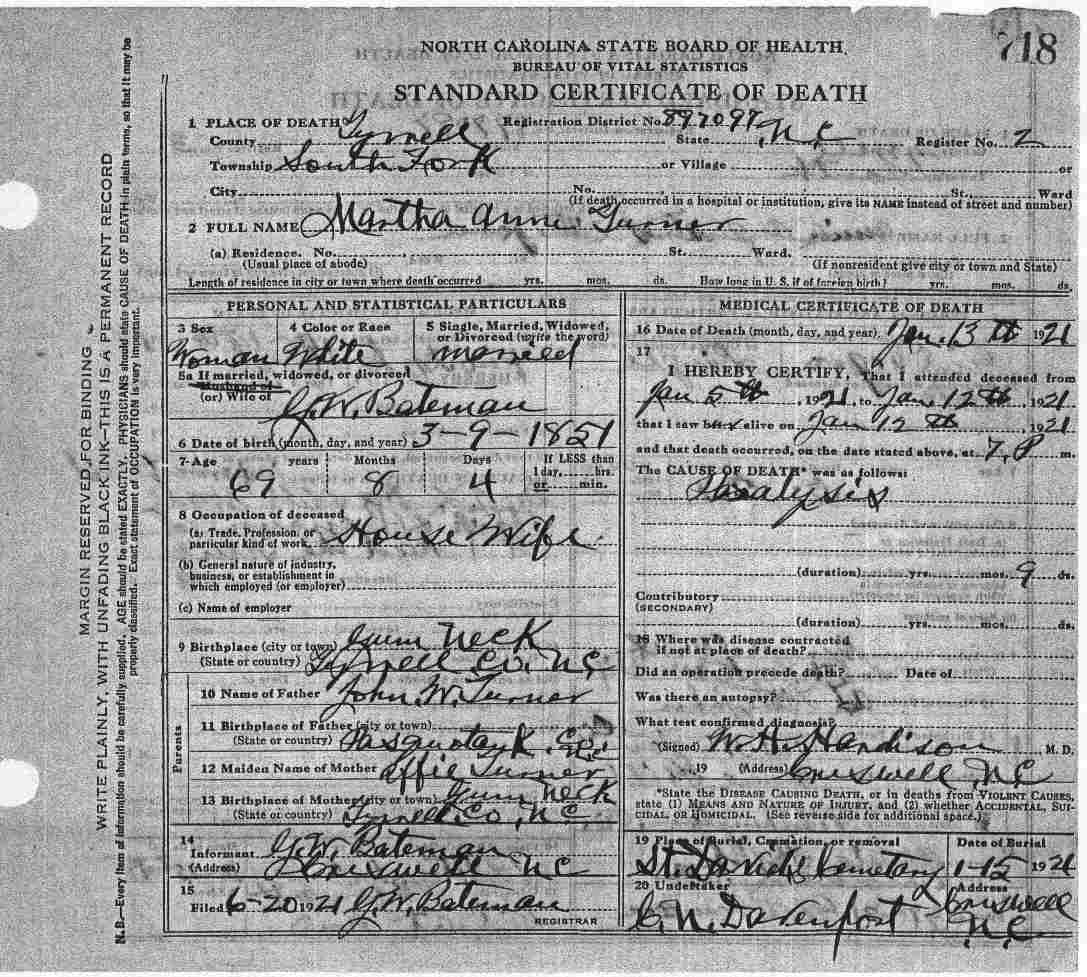 718
NORTH CAROLINA STATE BOARD OF HEALTH
BUREAU OF VITAL STATISTICS
STANDARD CERTIFICATE OF DEATH
1 PLACE OF DEATH Registration District No. 897097
County Tyrrell State N.C Register No. 2
Township South Fork or Village or
City No. St., Ward
(If death occurred in a hospital or institution, give its NAME instead of street and number)
2 FULL NAME Martha Anne Turner
(a) Residence. No. St. Ward.
(Usual place of abode) (If nonresident give city or town and State)
Length of residence in city or town where death occurred yrs. mos. ds. How long in U. S. if of foreign birth? yrs. mos. ds.
PERSONAL AND STATISTICAL PARTICULARS
3 Sex 4 Color or Race 5 Single, Married, Widowed, or Divorced (write the word)
Woman White married
5a If married, widowed, or divorced
Husband of
(or) Wife of G.W. Bateman
6 Date of birth (month, day, and year) 3-9-1851
7 Age years Months Days If LESS than
1 day, hrs.
or min.
69 8 4
8 Occupation of deceased
(a) Trade, Profession, or
particular kind of work House Wife
(b) General nature of industry,
business, or establishment in
which employed (or employer)
(c) Name of employer
9 Birthplace (city or town) Gum Neck
(State or country) Tyrrell Co, N.C
Parents
10 Name of Father John W. Turner
11 Birthplace of Father (city or town)
(State or country) Pasquotank Co. N.C.
12 Maiden Name of Mother Effie Turner
13 Birthplace of Mother (city or town) Gum Neck
(State or country) Tyrrell Co, N.C
14
Informant G.W. Bateman
(Address) Creswell N C
15
Filed 6-20 1921 G.W. Bateman
REGISTRAR
MEDICAL CERTIFICATE OF DEATH
16 Date of Death (month, day, and year) Jan. 13th 1921
17
I HEREBY CERTIFY, That I attended deceased from
Jan 5th, 1921, to Jan. 12th, 1921
that I saw her alive on Jan 12th, 1921
and that death occurred, on the date stated above, at 7, P m.
The CAUSE OF DEATH* was as follows:
Paralysis
(duration) yrs. mos. 9 ds.
Contributory
(SECONDARY)
(duration) yrs. mos. ds.
18 Where was disease contracted
if not at place of death?
Did an operation precede death? Date of
Was there an autopsy?
What test confirmed diagnosis?
(Signed) W. H. Hardison M. D.
, 19 (Address) Creswell, N C
*State the DISEASE CAUSING DEATH, or in deaths from VIOLENT CAUSES,
state (1) MEANS AND NATURE OF INJURY, and (2) whether ACCIDENTAL, SUI-
CIDAL, OR HOMICIDAL. (See reverse side for additional space.)
19 Place of Burial, Cremation, or removal Date of Burial
St. Davids Cemetary 1-15 1921
20 Undertaker Address
C. N. Davenport Creswell
N.C
MARGIN RESERVED FOR BINDING
WRITE PLAINLY, WITH UNFADING BLACK INK—THIS IS A PERMANENT RECORD
N. B.—Every item of information should be carefully supplied. AGE should be stated EXACTLY. PHYSICIANS should state CAUSE OF DEATH in plain terms, so that it may be
properly classified. Exact statement of OCCUPATION is very important.